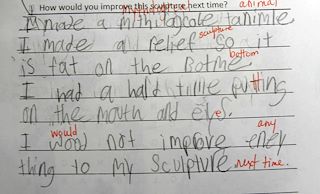 How would you improve this sculpture next time?
mythological animal
I made a mithilogicale tanimle
sculpture
I made a relief so it
bottom
is fat on the Botme.
I had a hard time putting
on the mouth and eys.
e
would any
I wood not improve eney
thing to my sculpture next time.